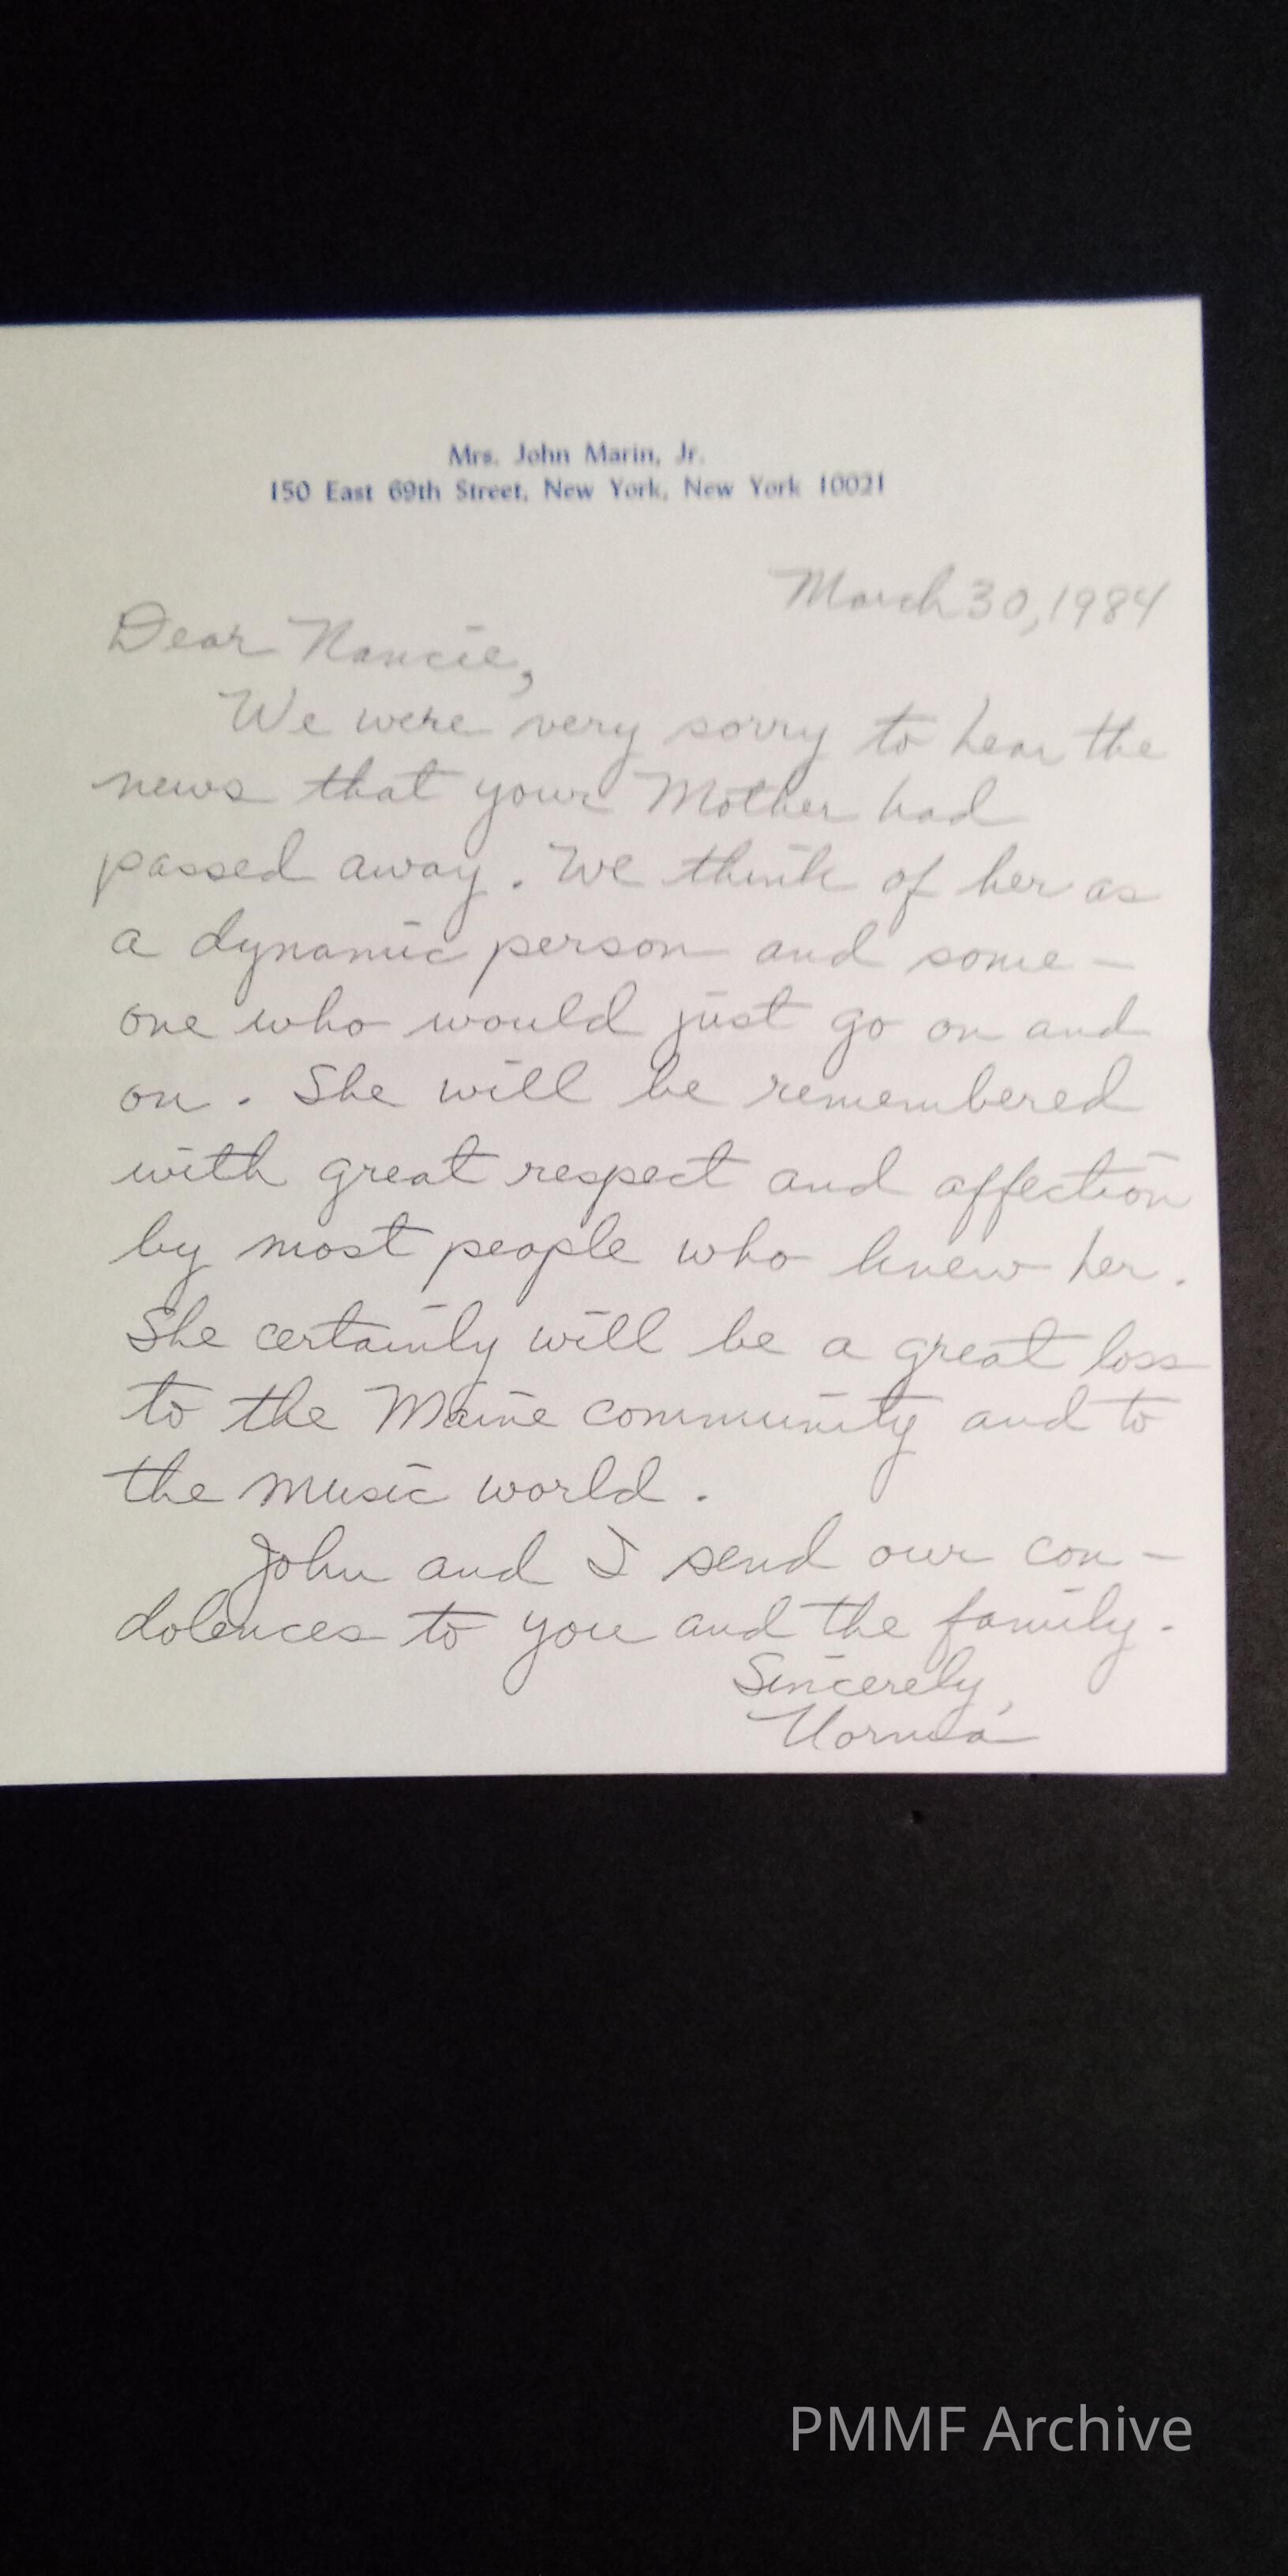 Mrs. John Marin, Jr.
150 East 69th Street, New York, New York 10021
March 30, 1984
Dear Nancie,
We were very sorry to hear the
news that your Mother had
passed away. We think of her as
a dynamic person and some-
one who would just go on and
on. She will be remembered
with great respect and affection
by most people who knew her.
She certainly will be a great loss
to the Maine community and to
the music world.
John and I send our con-
dolences to you and the family.
Sincerely,
Norma
PMMF Archive